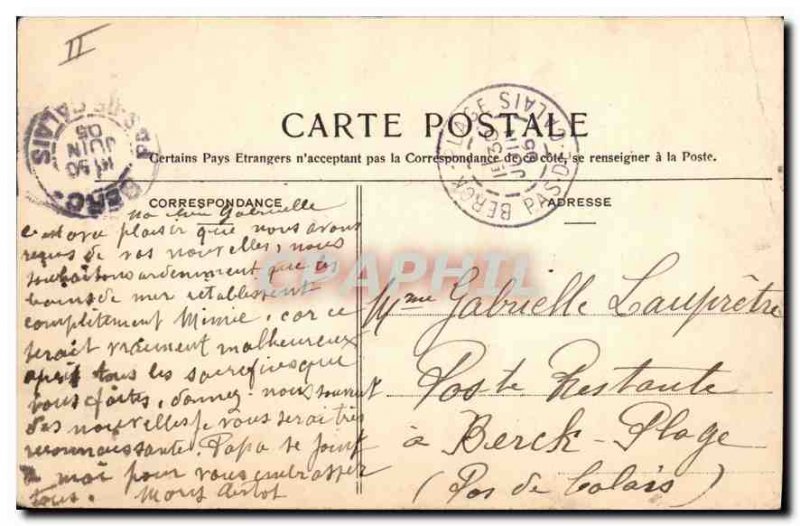 II
CARTE POSTALE
Certains Pays Etrangers n'acceptant pas la Correspondance de ce côté, se renseigner à la Poste.
CORRESPONDANCE
ADRESSE
BERCK-PLAGE PAS-DE-CALAIS
JUIN 05
JUIN 05
Ma Gabrielle
c'est avec plaisir que nous avons
reçus de vos nouvelles, nous
souhaitons ardemment que ces
bains de mer rétablissent
complètement Mimie, car ce
serait vraiment malheureux
après tous les sacrifices que
vous faites, donnez-nous souvent
des nouvelles je vous serai très
reconnaissante. Papa se joint
à moi pour vous embrasser
tous.
Mme Gabrielle Lauprêtre
Poste Restante
à Berck-Plage
(Pas de Calais)
CPAPHIL